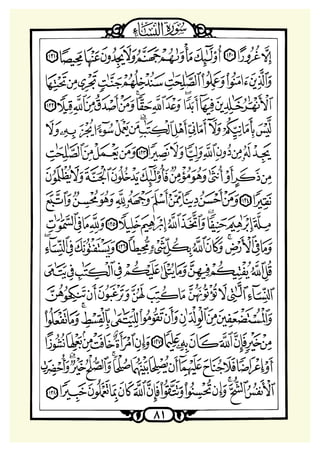 سُورَةُ النِّسَاءِ
إِلَّا غُرُورًا ١٢٠ أُولَٰئِكَ مَأْوَىٰهُمْ جَهَنَّمُ وَلَا يَجِدُونَ عَنْهَا مَحِيصًا ١٢١
وَالَّذِينَ ءَامَنُوا وَعَمِلُوا الصَّٰلِحَٰتِ سَنُدْخِلُهُمْ جَنَّٰتٍ تَجْرِي مِن تَحْتِهَا
الْأَنْهَٰرُ خَٰلِدِينَ فِيهَا أَبَدًا وَعْدَ اللَّهِ حَقًّا وَمَنْ أَصْدَقُ مِنَ اللَّهِ قِيلًا ١٢٢
لَّيْسَ بِأَمَانِيِّكُمْ وَلَا أَمَانِيِّ أَهْلِ الْكِتَٰبِ مَن يَعْمَلْ سُوءًا يُجْزَ بِهِ وَلَا
يَجِدْ لَهُ مِن دُونِ اللَّهِ وَلِيًّا وَلَا نَصِيرًا ١٢٣ وَمَن يَعْمَلْ مِنَ الصَّٰلِحَٰتِ
مِن ذَكَرٍ أَوْ أُنثَىٰ وَهُوَ مُؤْمِنٌ فَأُولَٰئِكَ يَدْخُلُونَ الْجَنَّةَ وَلَا يُظْلَمُونَ
نَقِيرًا ١٢٤ وَمَنْ أَحْسَنُ دِينًا مِّمَّنْ أَسْلَمَ وَجْهَهُ لِلَّهِ وَهُوَ مُحْسِنٌ وَاتَّبَعَ
مِلَّةَ إِبْرَٰهِيمَ حَنِيفًا وَاتَّخَذَ اللَّهُ إِبْرَٰهِيمَ خَلِيلًا ١٢٥ وَلِلَّهِ مَا فِي السَّمَٰوَٰتِ
وَمَا فِي الْأَرْضِ وَكَانَ اللَّهُ بِكُلِّ شَيْءٍ مُّحِيطًا ١٢٦ وَيَسْتَفْتُونَكَ فِي النِّسَاءِ
قُلِ اللَّهُ يُفْتِيكُمْ فِيهِنَّ وَمَا يُتْلَىٰ عَلَيْكُمْ فِي الْكِتَٰبِ فِي يَتَٰمَى
النِّسَاءِ الَّٰتِي لَا تُؤْتُونَهُنَّ مَا كُتِبَ لَهُنَّ وَتَرْغَبُونَ أَن تَنكِحُوهُنَّ
وَالْمُسْتَضْعَفِينَ مِنَ الْوِلْدَٰنِ وَأَن تَقُومُوا لِلْيَتَٰمَىٰ بِالْقِسْطِ وَمَا تَفْعَلُوا
مِنْ خَيْرٍ فَإِنَّ اللَّهَ كَانَ بِهِ عَلِيمًا ١٢٧ وَإِنِ امْرَأَةٌ خَافَتْ مِن بَعْلِهَا نُشُوزًا
أَوْ إِعْرَاضًا فَلَا جُنَاحَ عَلَيْهِمَا أَن يُصْلِحَا بَيْنَهُمَا صُلْحًا وَالصُّلْحُ خَيْرٌ وَأُحْضِرَتِ
الْأَنفُسُ الشُّحَّ وَإِن تُحْسِنُوا وَتَتَّقُوا فَإِنَّ اللَّهَ كَانَ بِمَا تَعْمَلُونَ خَبِيرًا ١٢٨
٨١